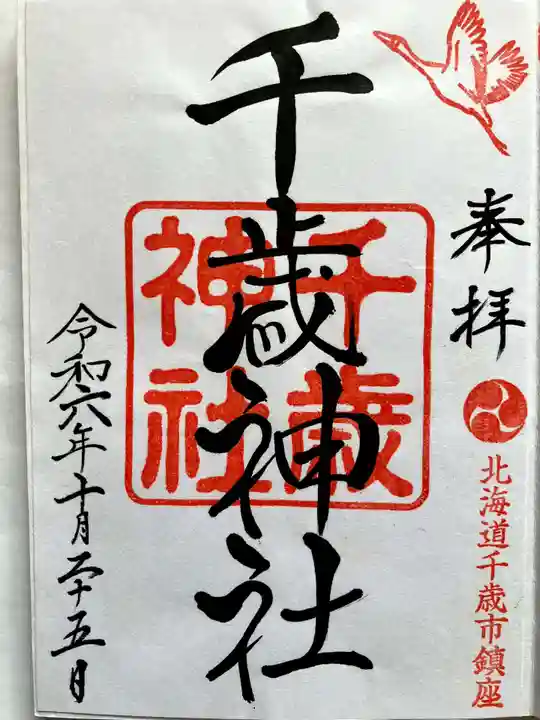 奉拝
北海道千歳市鎮座
千歳神社
千歳
神社
令和六年十月二十五日